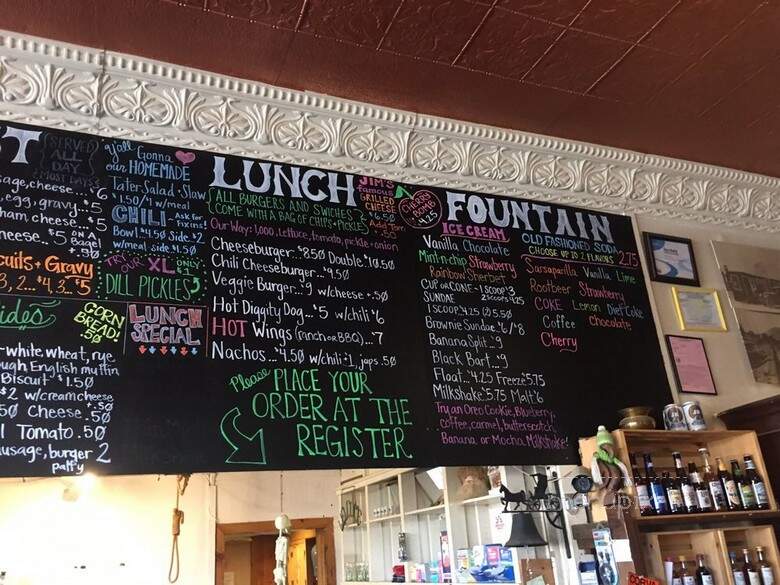 SERVED
ALL
DAY
MOST DAYS
sage, cheese... 6
egg, gravy.. 5
ham, cheese.. 5
cheese.. 5 ON A
Bagel
.50
cuits + Gravy
2... 4, 3... 5
y'all Gonna
our HOMEMADE
Tater Salad + Slaw
1.50 / 4 w/meal
CHILI - Ask for
Fixins!
Bowl 4.50 Side 2
w/meal side 1.50
TRY OUR XL ONLY
DILL PICKLES
ides
CORN
BREAD!
.50
LUNCH
SPECIAL
white, wheat, rye
ough English muffin
Biscuit $1.50
$2 w/creamcheese
50 Cheese .50
Tomato .50
ausage, burger 2
patty
LUNCH
JIM'S
famous
GRILLED
CHEESE
6.50
Add Tom
.50
ALL BURGERS AND SWICHES
COME WITH A BAG OF CHIPS + PICKLES
Our Way: 1,000, lettuce, tomato, pickle + onion
Cheeseburger..$8.50 Double $10.50
Chili Cheeseburger..$9.50
Veggie Burger.. $9 w/cheese +.50
Hot Diggity Dog.. $5 w/chili $6
HOT Wings (ranch or BBQ)...$7
Nachos..$4.50 w/chili +1, japs .50
Please PLACE YOUR
ORDER AT THE
REGISTER
CHERRY
BOMB
4.25
FOUNTAIN
ICE CREAM
Vanilla Chocolate
Mint-n-chip Strawberry
Rainbow Sherbet
CUP OR CONE - 1 SCOOP $3
SUNDAE 2 SCOOPS 4.25
1 SCOOP $4.25 (2) 5.50
Brownie Sundae $6/$8
Banana Split.. $9
Black Bart.. $9
Float.. $4.25 Freeze 5.75
Milkshake $5.75 Malt $6
Try an Oreo Cookie, Blueberry,
coffee, carmel, butterscotch,
Banana or Mocha Milkshake!
OLD FASHIONED SODA
CHOOSE UP TO 2 FLAVORS 2.75
Sarsaparilla Vanilla Lime
Rootbeer Strawberry
COKE Lemon Diet Coke
Coffee Chocolate
Cherry